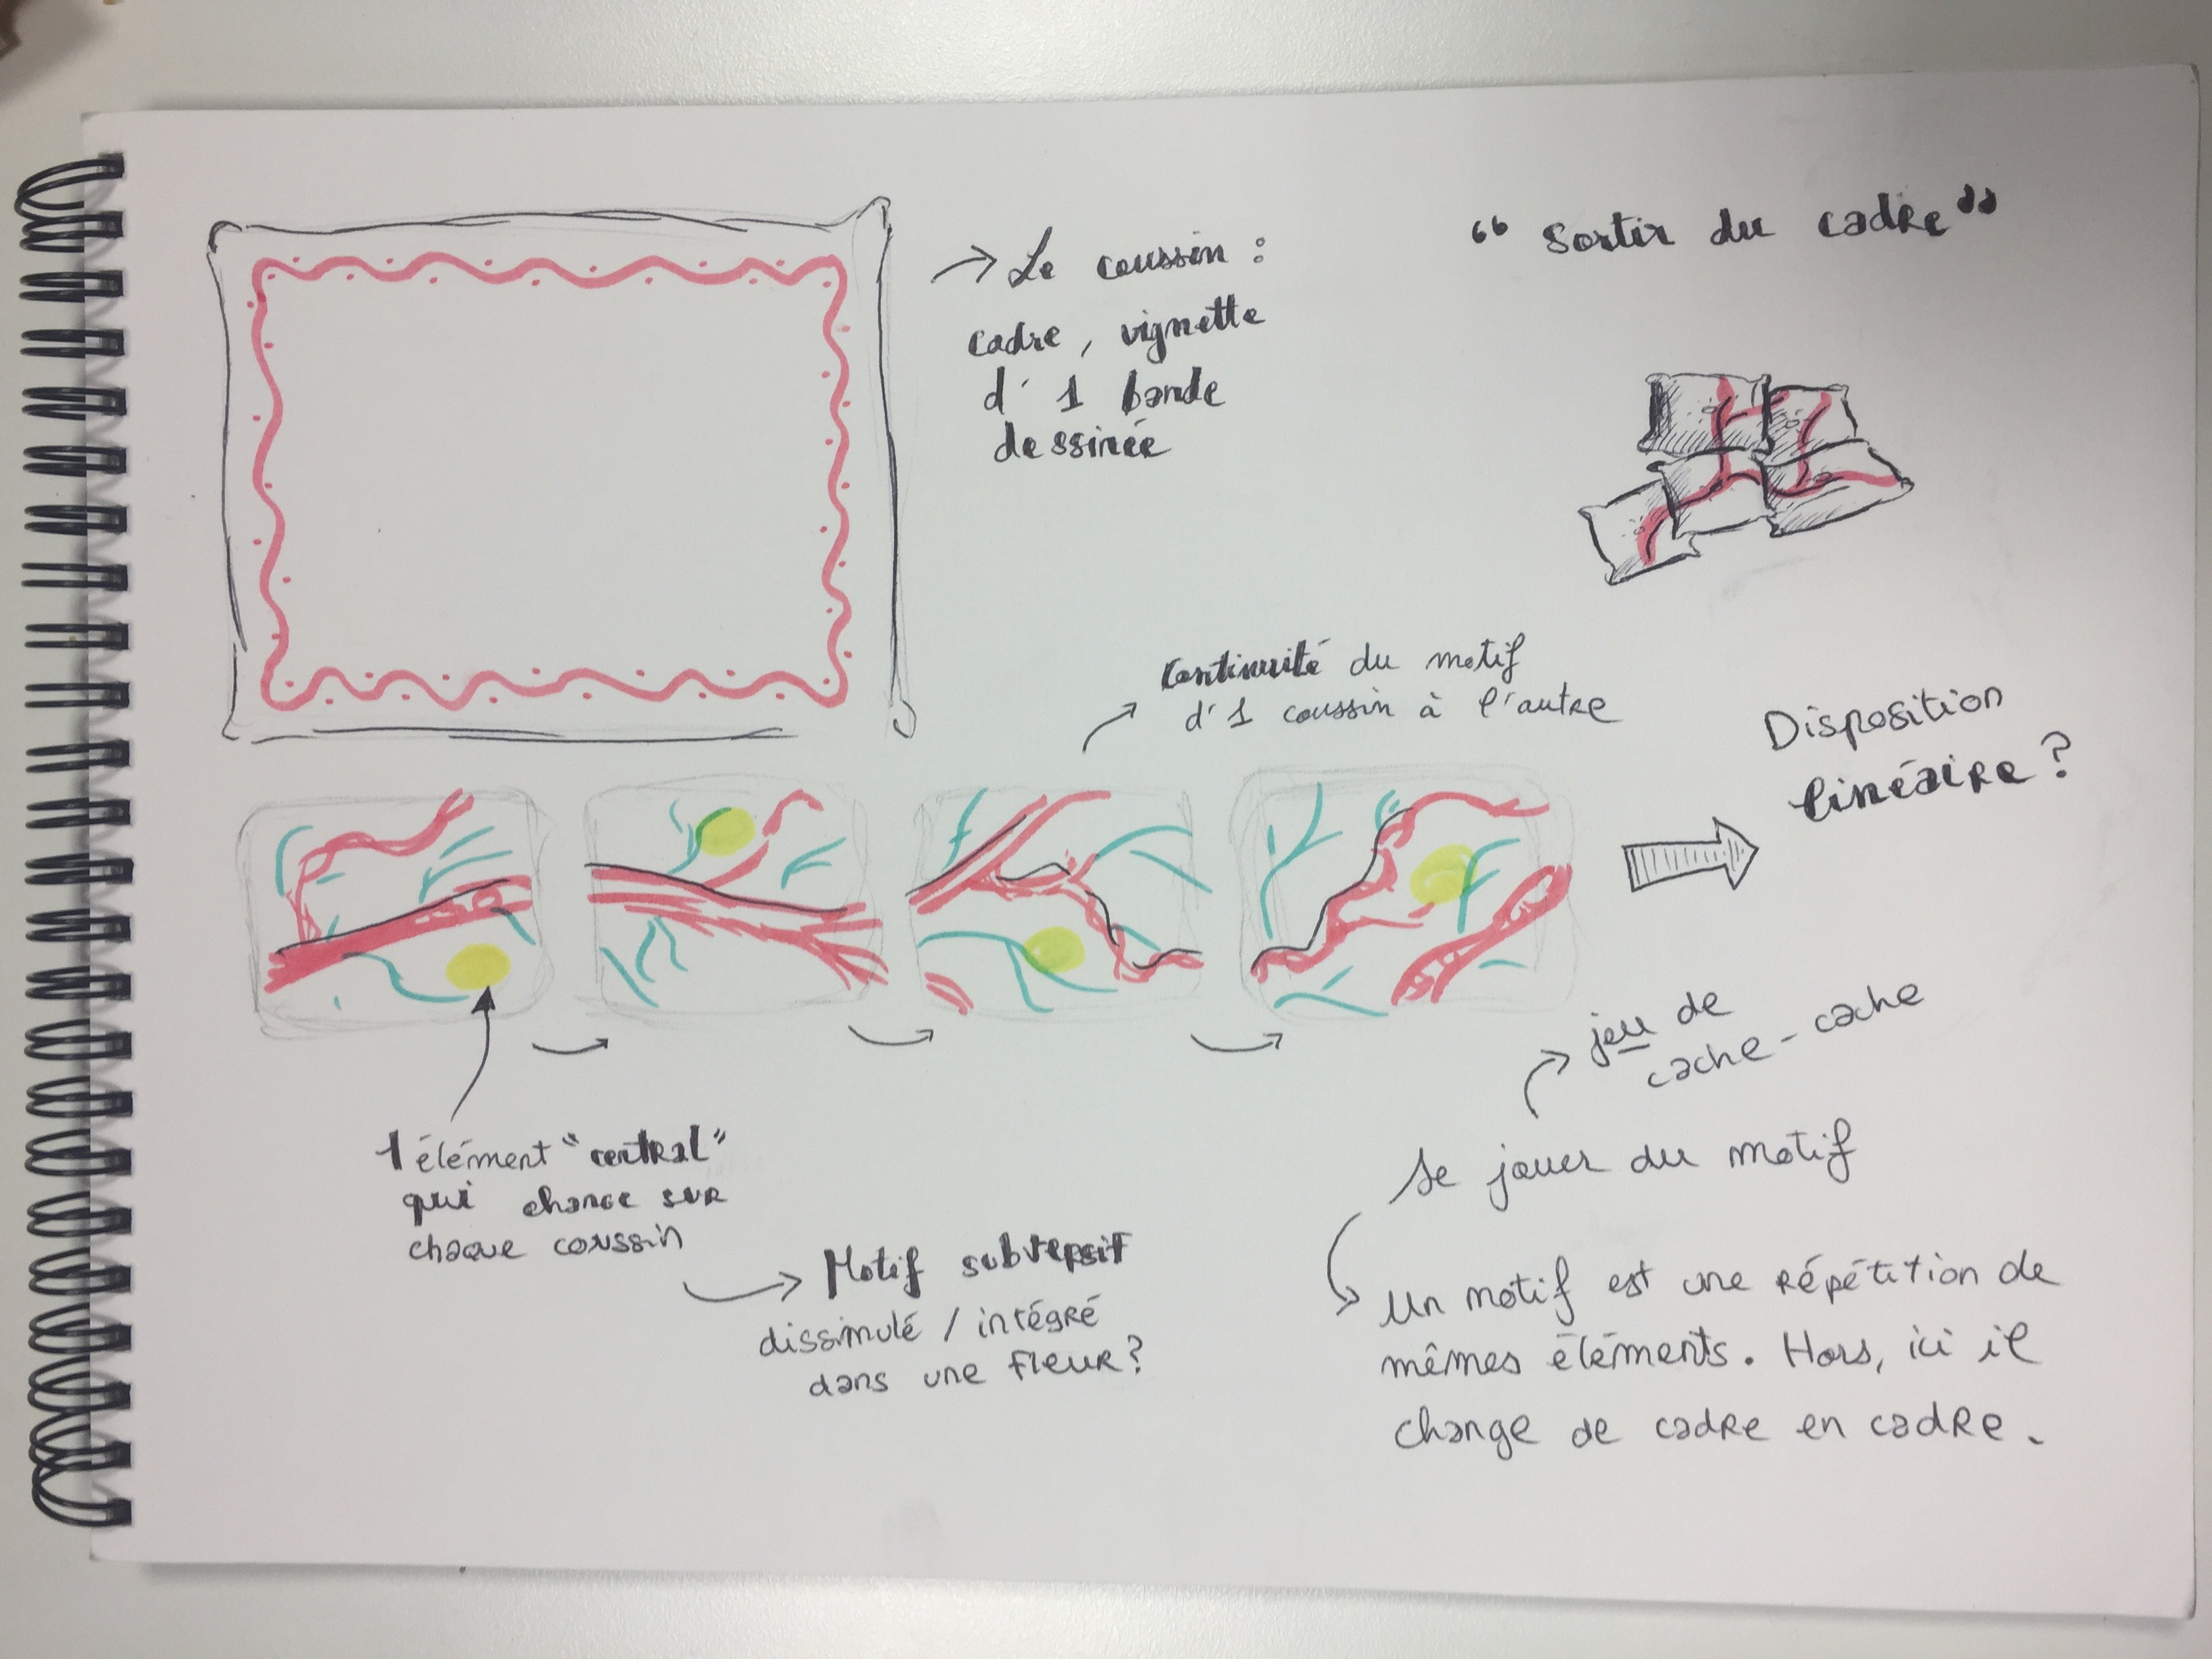 → Le coussin :
cadre, vignette
d'1 bande
dessinée
“ Sortir du cadre ”
Continuité du motif
d'1 coussin à l'autre
Disposition
linéaire ?
1 élément "central"
qui change sur
chaque coussin
Motif subversif
dissimulé / intégré
dans une fleur ?
jeu de
cache-cache
Se jouer du motif
Un motif est une répétition de
mêmes éléments. Hors, ici il
change de cadre en cadre.